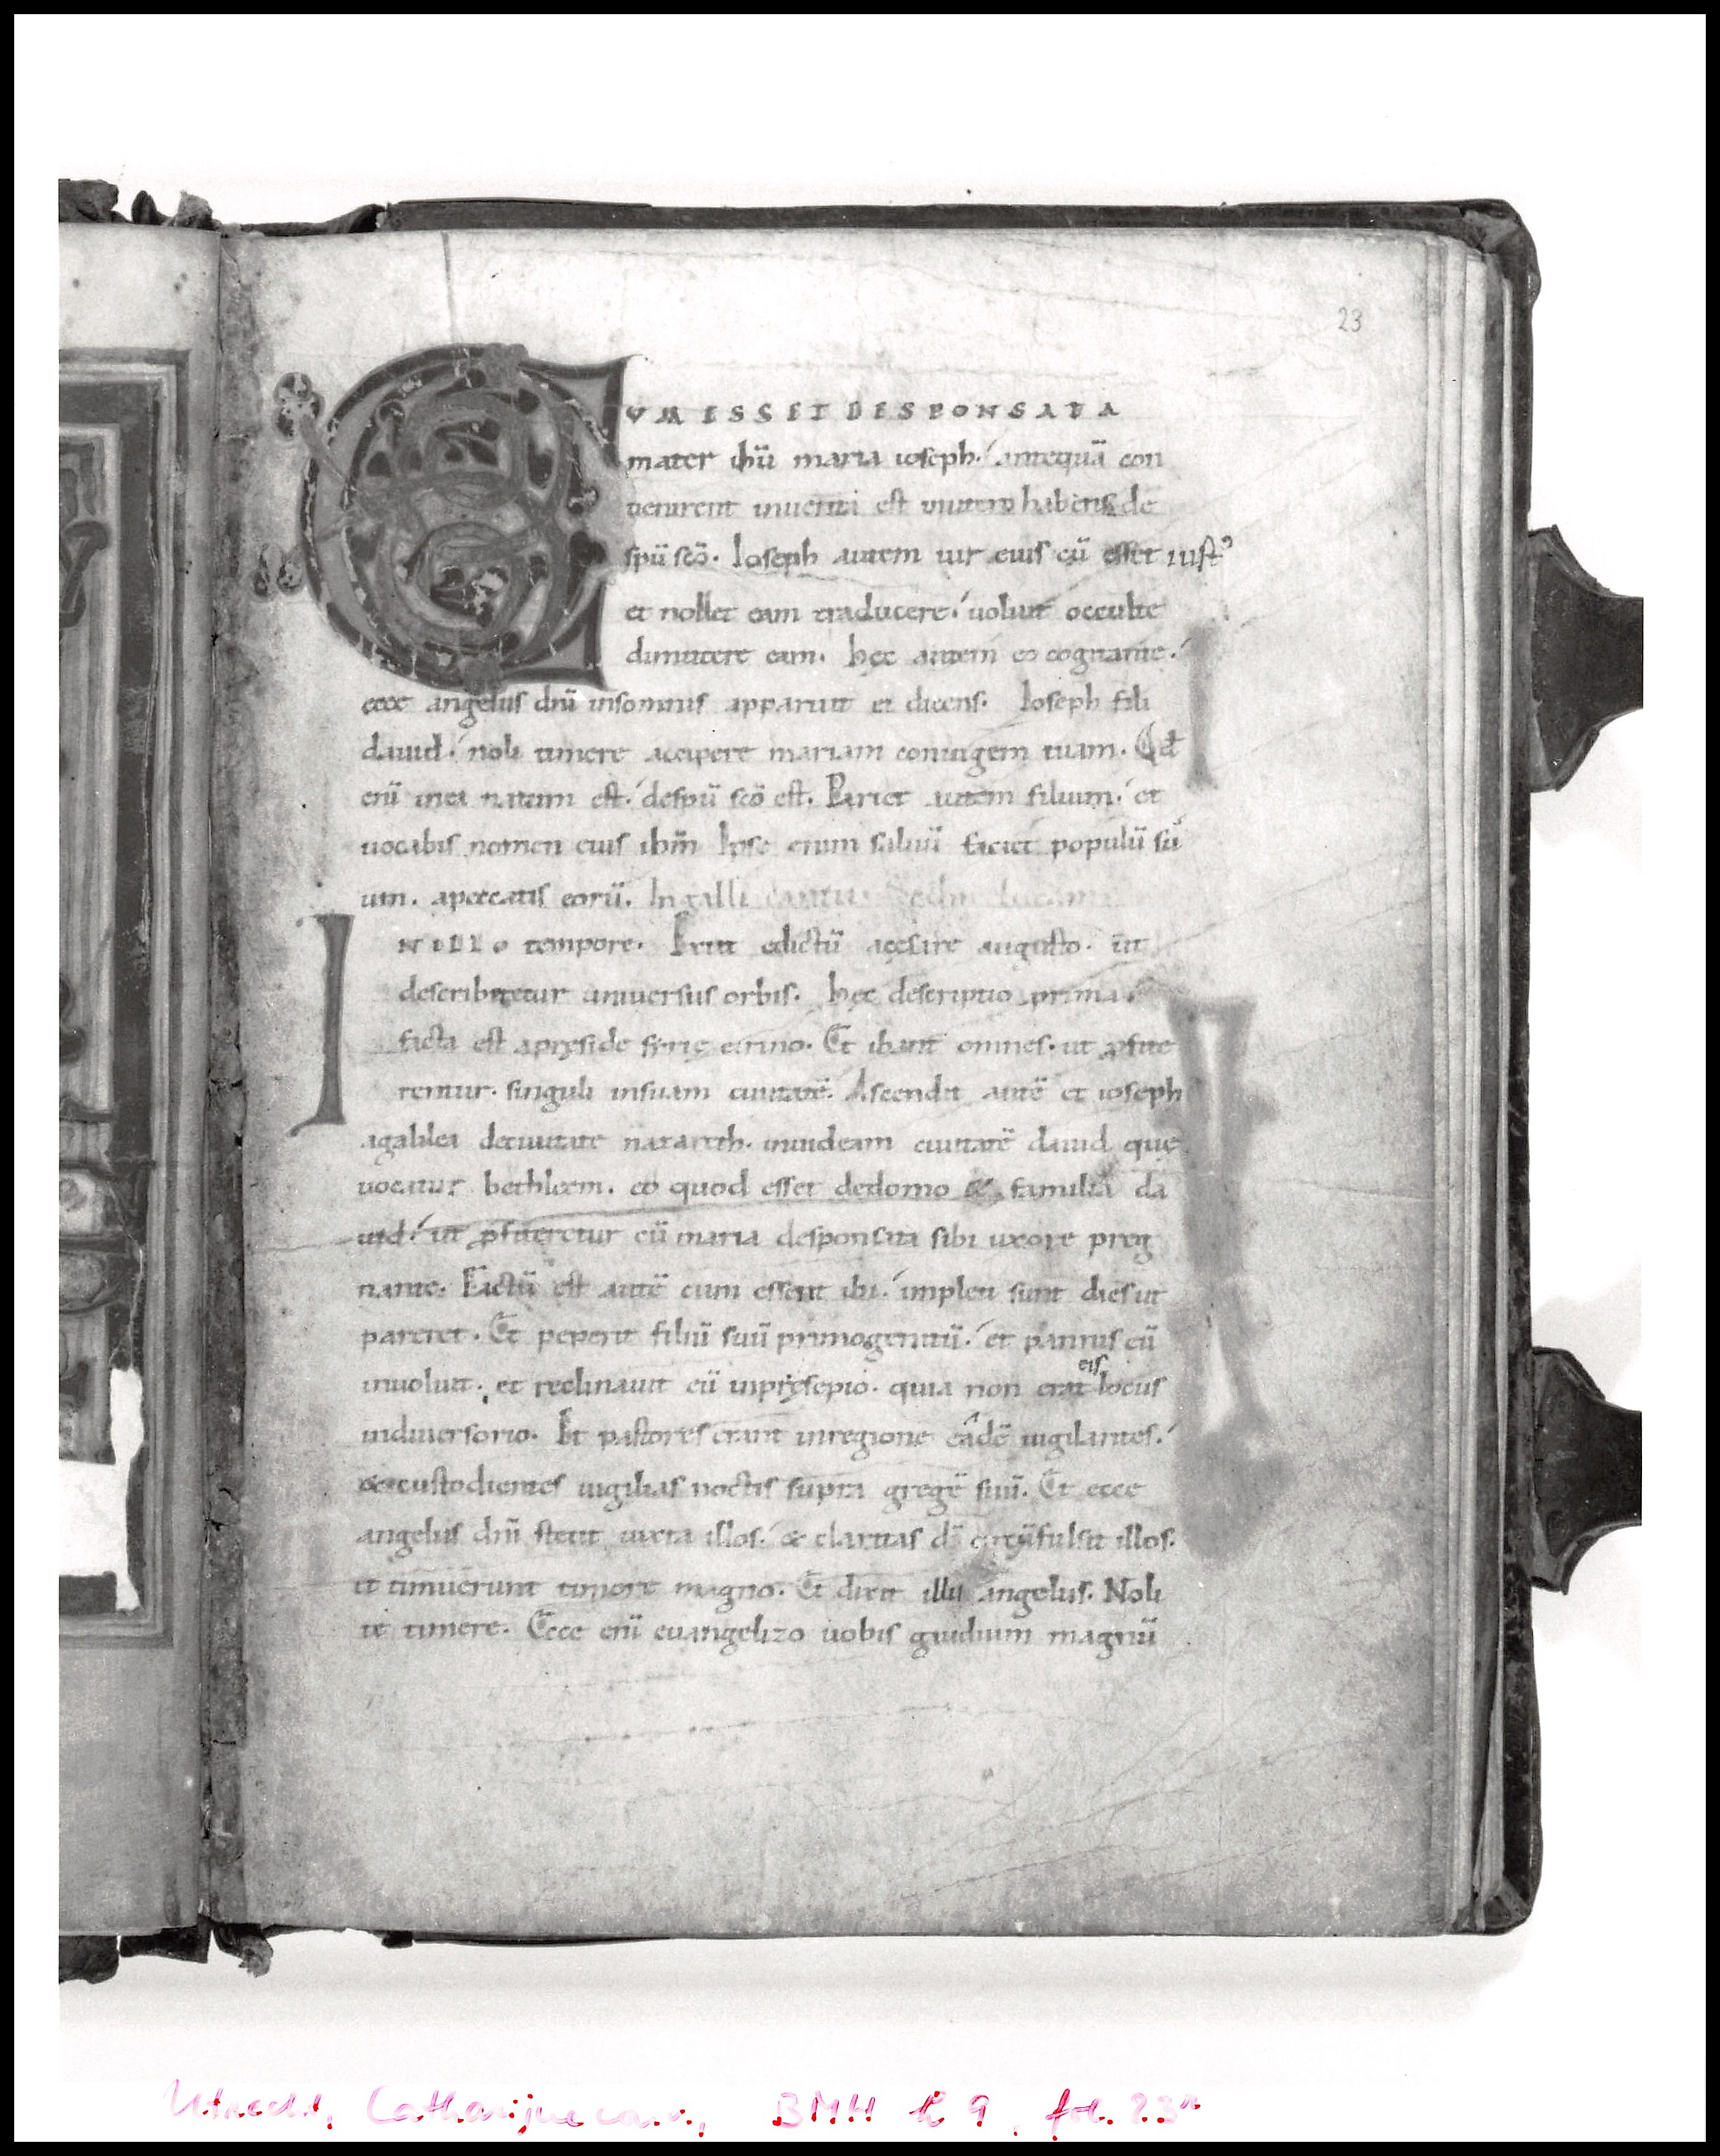 23
CVM ESSET DESPONSATA
mater ihū maria ioseph. antequā con
uenirent inuenta est inutero habens de
spū scō. Ioseph autem uir eius cū esset iust᾽
et nollet eam traducere. uoluit occulte
dimittere eam. hęc autem eo cogitante.
ecce angelus dnī insomnis apparuit ei dicens. Ioseph fili
dauid. noli timere accipere mariam coniugem tuam. Qd̄
enī inea natum est. despū scō est. Pariet autem filium. et
uocabis nomen eius ihm̄ Ipse enim saluū faciet populū su
um. apeccatis eorū. In galli cantu. Scdm Lucam
IN ILLO tempore. Exiit edictū acesare augusto. ut
describeretur uniuersus orbis. hęc descriptio prima
facta est apręside sirię cirino. Et ibant omnes. ut ꝓfite
rentur. singuli insuam ciuitatē. Ascendit autē et ioseph
agalilea deciuitate nazareth. iniudeam ciuitatē dauid quę
uocatur bethleem. eo quod esset dedomo & familia da
uid. ut ꝓfiteretur cū maria desponsata sibi uxore pręg
nante. Factū est autē cum essent ibi. impleti sunt dies ut
pareret. Et peperit filiū suū primogenitū. et pannis eū
inuoluit. et reclinauit eū inpręsepio. quia non erat eis locus
indiuersorio. Et pastores erant inregione eadē uigilantes.
& custodientes uigilias noctis supra gregē suū. Et ecce
angelus dnī stetit iuxta illos. & claritas dī circūfulsit illos.
et timuerunt timore magno. Et dixit illis angelus. Noli
te timere. Ecce enī euangelizo uobis gaudium magnū
Utrecht, Catharijneconv., BMH h 9, fol. 23r